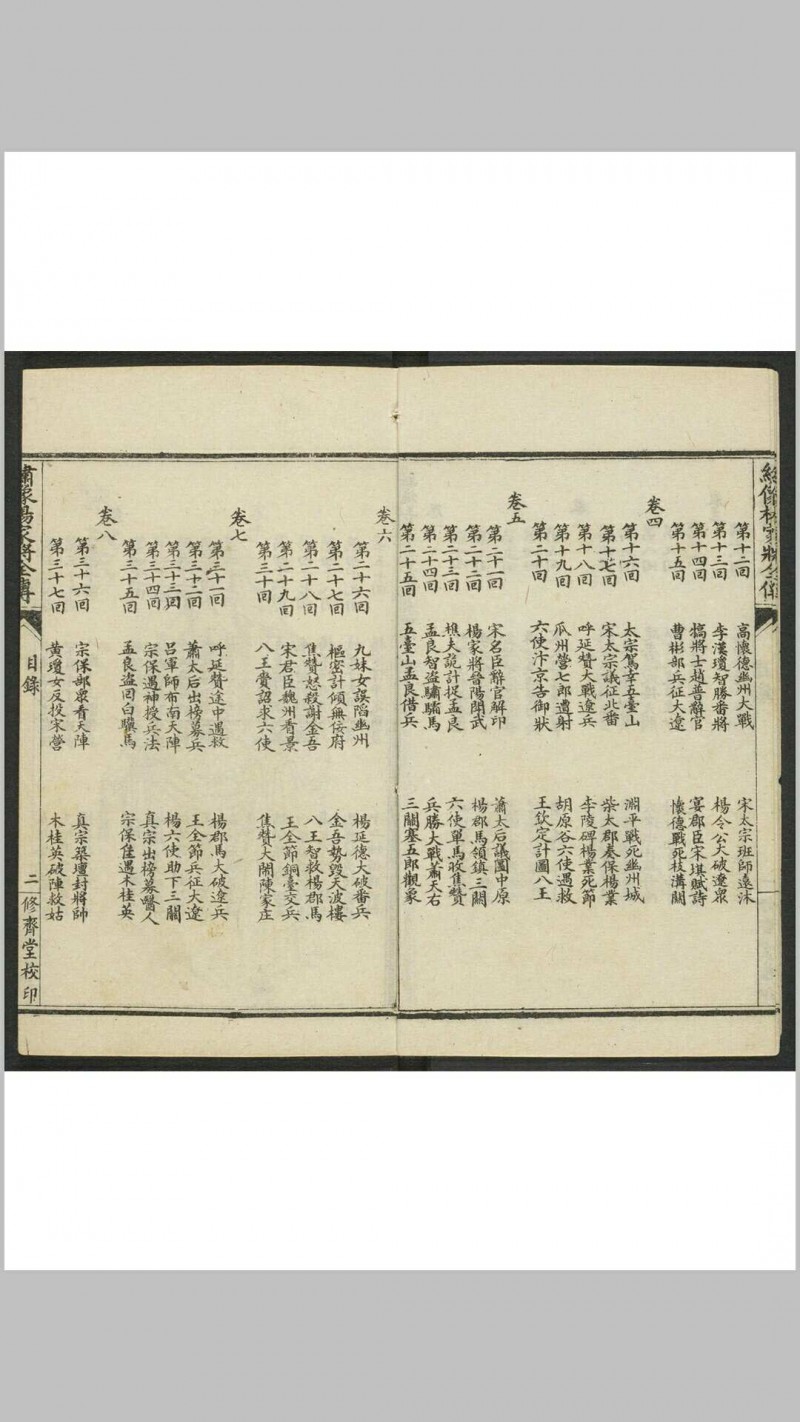 繪像楊家將全傳
第十二回 高懷德幽州大戰 宋太宗班師遠沫
第十三回 李漢瓊智勝番將 楊令公大破遼眾
第十四回 犒將士趙普辭官 宴郡臣宋琪賦詩
第十五回 曹彬部兵征大遼 懷德戰死枝溝關
卷四
第十六回 太宗駕幸五臺山 淵平戰死幽州城
第十七回 宋太宗議征北番 柴太郡奏保楊業
第十八回 呼延贊大戰遼兵 李陵碑楊業死節
第十九回 瓜州營七郎遭射 胡原谷六使遇救
第二十回 六使汴京告御狀 王欽定計圖八王
卷五
第二十一回 宋名臣辭官解印 蕭太后議圖中原
第二十二回 楊家將晉陽閱武 楊郡馬領鎮三關
第二十三回 樵夫詭計捉孟良 六使單馬收焦贊
第二十四回 孟良智盜驌驦馬 兵勝大戰蕭天右
第二十五回 五臺山孟良借兵 三關塞五郎觀象
卷六
第二十六回 九妹女誤陷幽州 楊延德大破番兵
第二十七回 樞密計傾無佞府 金吾勢毀天波樓
第二十八回 焦贊怒殺謝金吾 八王智救楊郡馬
第二十九回 宋君臣魏州看景 王全節銅臺交兵
第三十回 八王賫詔求六使 焦贊大鬧陳家庄
卷七
第三十一回 呼延贊途中遇救 楊郡馬大破遼兵
第三十二回 蕭太后出榜募兵 王全節兵征大遼
第三十三回 呂軍師布南天陣 楊六使助下三關
第三十四回 宗保遇神授兵法 真宗出榜募醫人
第三十五回 孟良盜回白驥馬 宗保佳遇木桂英
卷八
第三十六回 宗保部眾看天陣 真宗築壇封將帥
第三十七回 黃瓊女反投宋營 木桂英破陣救姑
繡像楊家將全傳 目錄 二 修齊堂校印